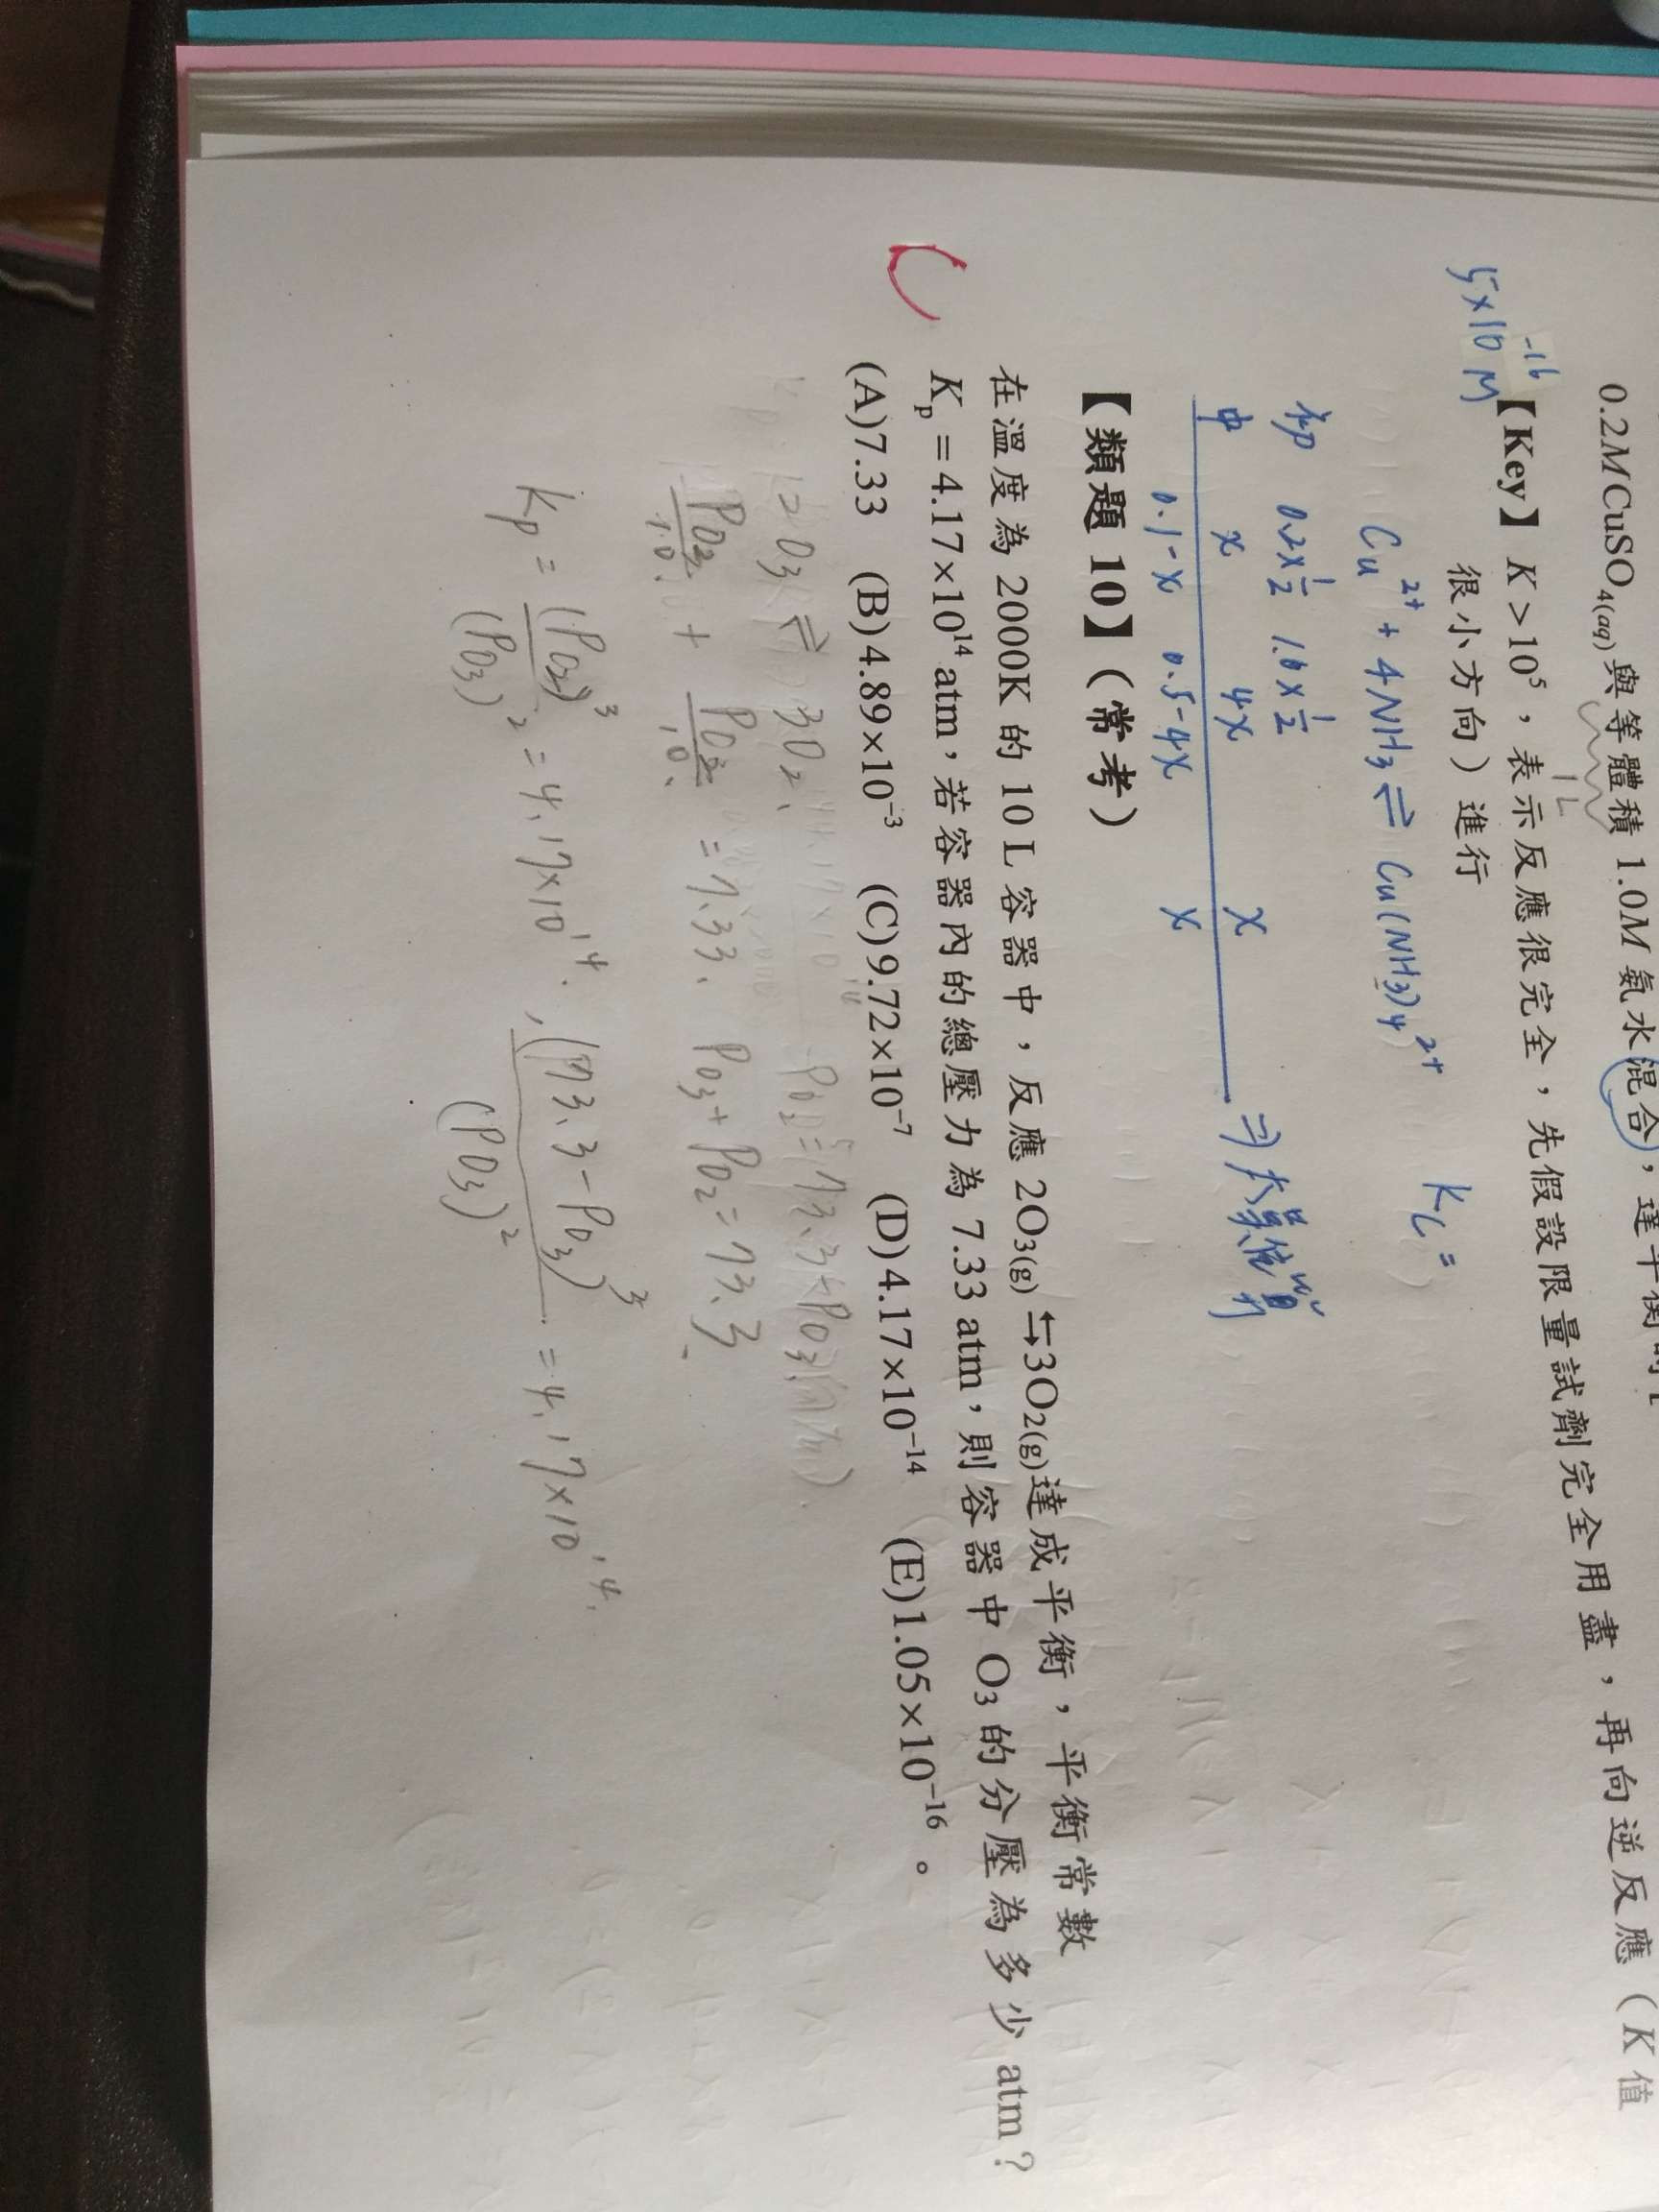 0.2MCuSO₄₍aq₎與等體積 1.0M 氨水混合，達平衡時
1L
【Key】K>10⁵，表示反應很完全，先假設限量試劑完全用盡，再向逆反應（K 值
很小方向）進行
5×10⁻¹⁶ M
Cu²⁺ + 4NH₃ ⇌ Cu(NH₃)₄²⁺ Kc =
初 0.2×½ 1.0×½
中 x 4x x
0.1-x 0.5-4x x
【類題 10】（常考）
在溫度為 2000K 的 10 L 容器中，反應 2O₃₍g₎ ⇆3O₂₍g₎達成平衡，平衡常數
Kₚ＝4.17×10¹⁴ atm，若容器內的總壓力為 7.33 atm，則容器中 O₃ 的分壓為多少 atm？
(A)7.33 (B)4.89×10⁻³ (C)9.72×10⁻⁷ (D)4.17×10⁻¹⁴ (E)1.05×10⁻¹⁶。
C
2O₃ ⇌ 3O₂
= 7.33. PO₃ + PO₂ = 73.3
Kp = (PO₂)³/(PO₃)² = 4.17×10¹⁴. , (73.3-PO₃)³/(PO₃)² = 4.17×10¹⁴.